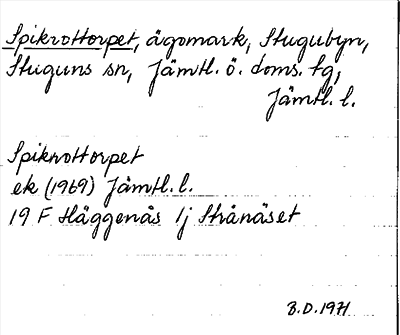 Spikrottorpet, ägomark, Stugubyn,
Stuguns sn, Jämtl. ö. doms. tg,
Jämtl. l.
Spikrottorpet
ek (1969) Jämtl. l.
19 F Häggenås 1j Strånäset
B.D. 1971